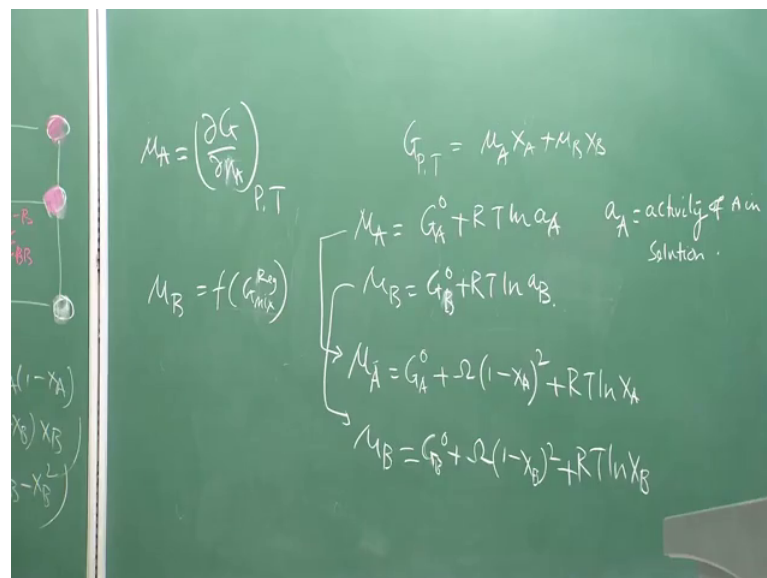 -B
BB
A(1-X_A)
X_B) X_B
B-X_B^2)
μ_A = (∂G/∂n_A)_{P,T}
μ_B = f(G_{mix}^{Reg})
G_{P,T} = μ_A X_A + μ_B X_B
μ_A = G_A^0 + RT ln a_A
a_A = activity of A in
solution.
μ_B = G_B^0 + RT ln a_B.
μ_A = G_A^0 + Ω(1-X_A)^2 + RT ln X_A
μ_B = G_B^0 + Ω(1-X_B)^2 + RT ln X_B